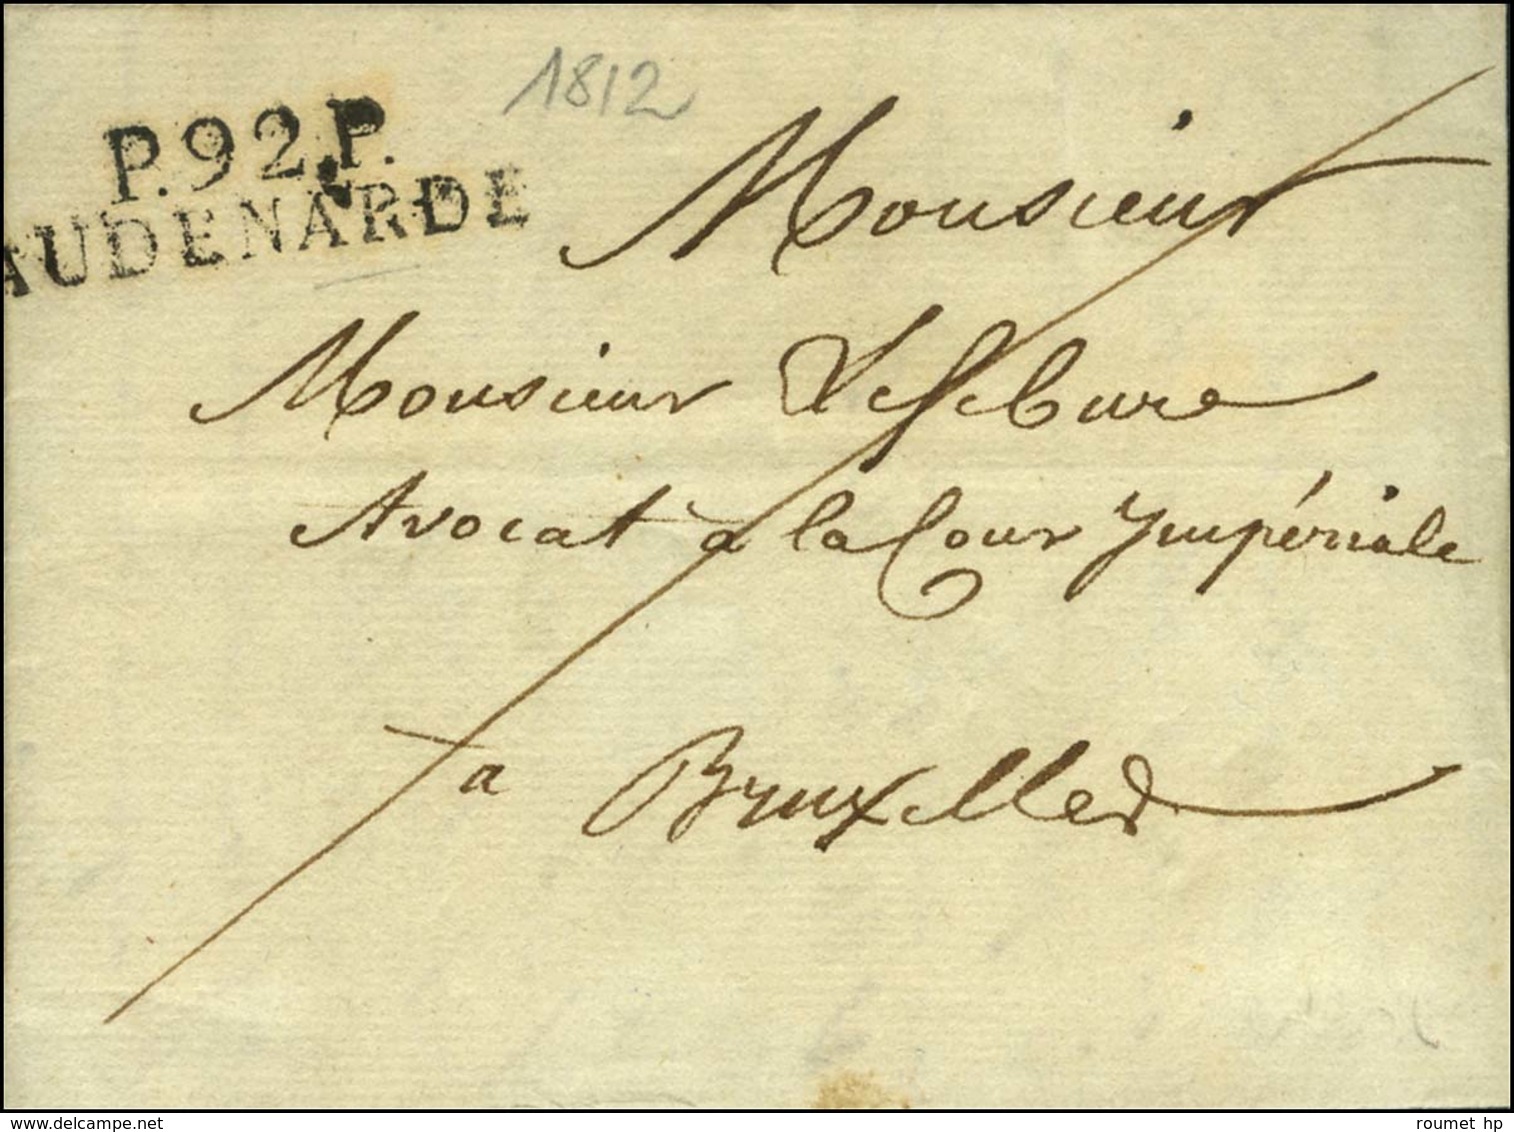 1812
P.92.P.
AUDENARDE
Monsieur
Monsieur Lefebure
Avocat a la Cour Impériale
a Bruxelles
delcampe.net
roumet hp